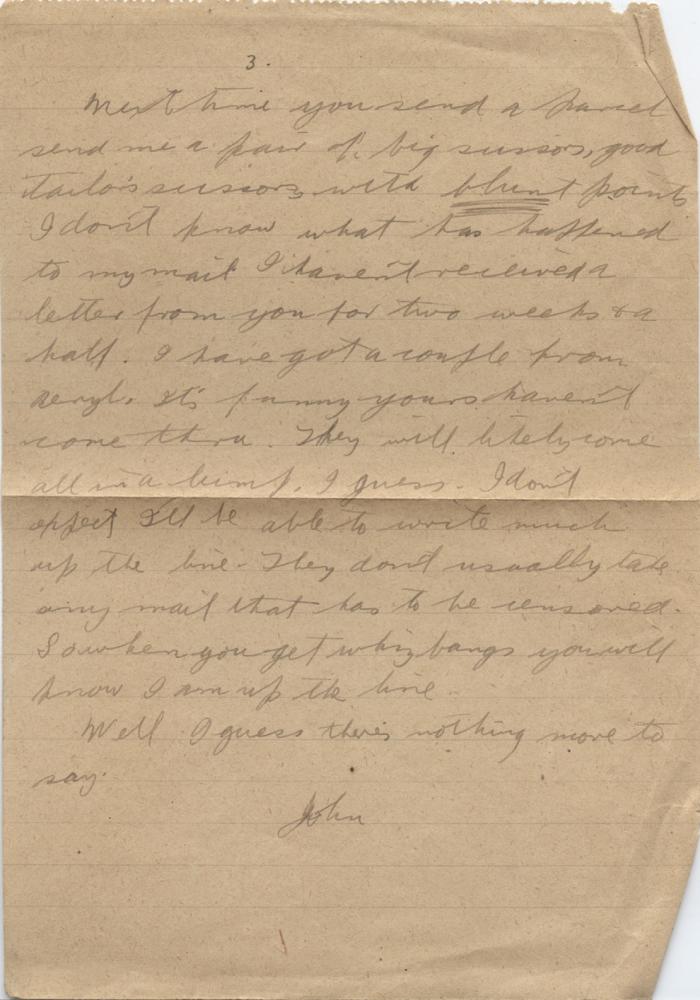 3.
Next time you send a parcel
send me a pair of big scissors, good
tailor's scissors with blunt points
I don't know what has happened
to my mail I haven't recieved a
letter from you for two weeks & a
half. I have got a couple from
Beryl. It's funny yours haven't
come thru. They will likely come
all in a lump, I guess. I don't
expect I'll be able to write much
up the line. They don't usually take
any mail that has to be censored.
So when you get whizbangs you will
know I am up the line.
Well I guess there's nothing more to
say.
John